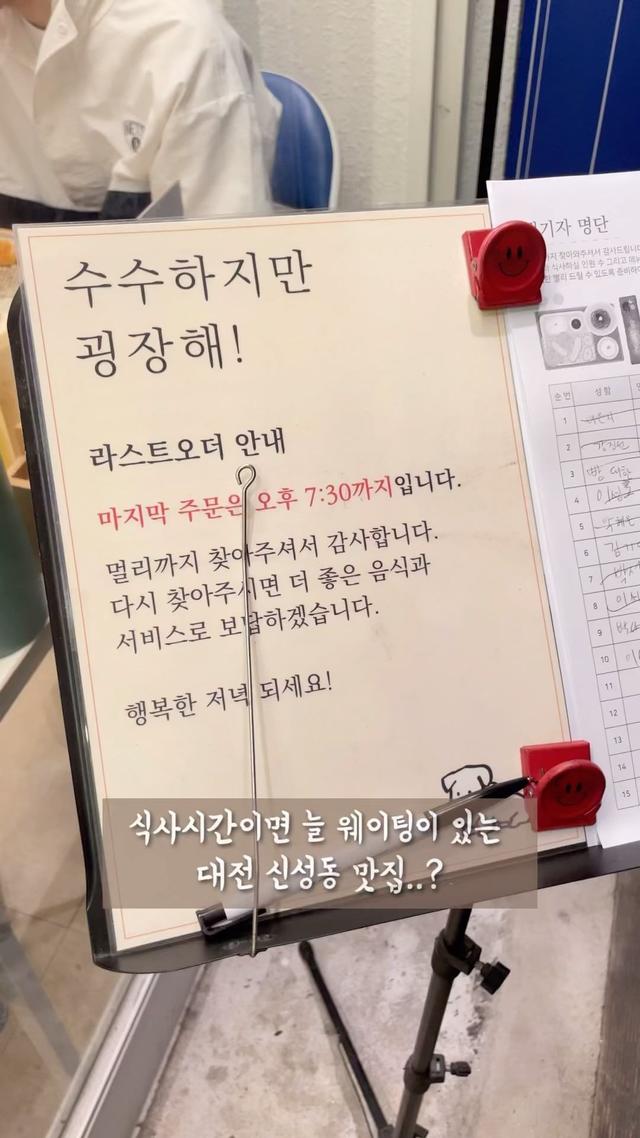 수수하지만
굉장해!
라스트오더 안내
마지막 주문은 오후 7:30까지입니다.
멀리까지 찾아주셔서 감사합니다.
다시 찾아주시면 더 좋은 음식과
서비스로 보답하겠습니다.
행복한 저녁 되세요!
기자 명단
찾아와주셔서 감사드립니다
식사하실 인원 수 그리고
순번 성함
1
2
3
4
5
6
7
8
9
10
11
12
13
14
15
식사시간이면 늘 웨이팅이 있는
대전 신성동 맛집..?